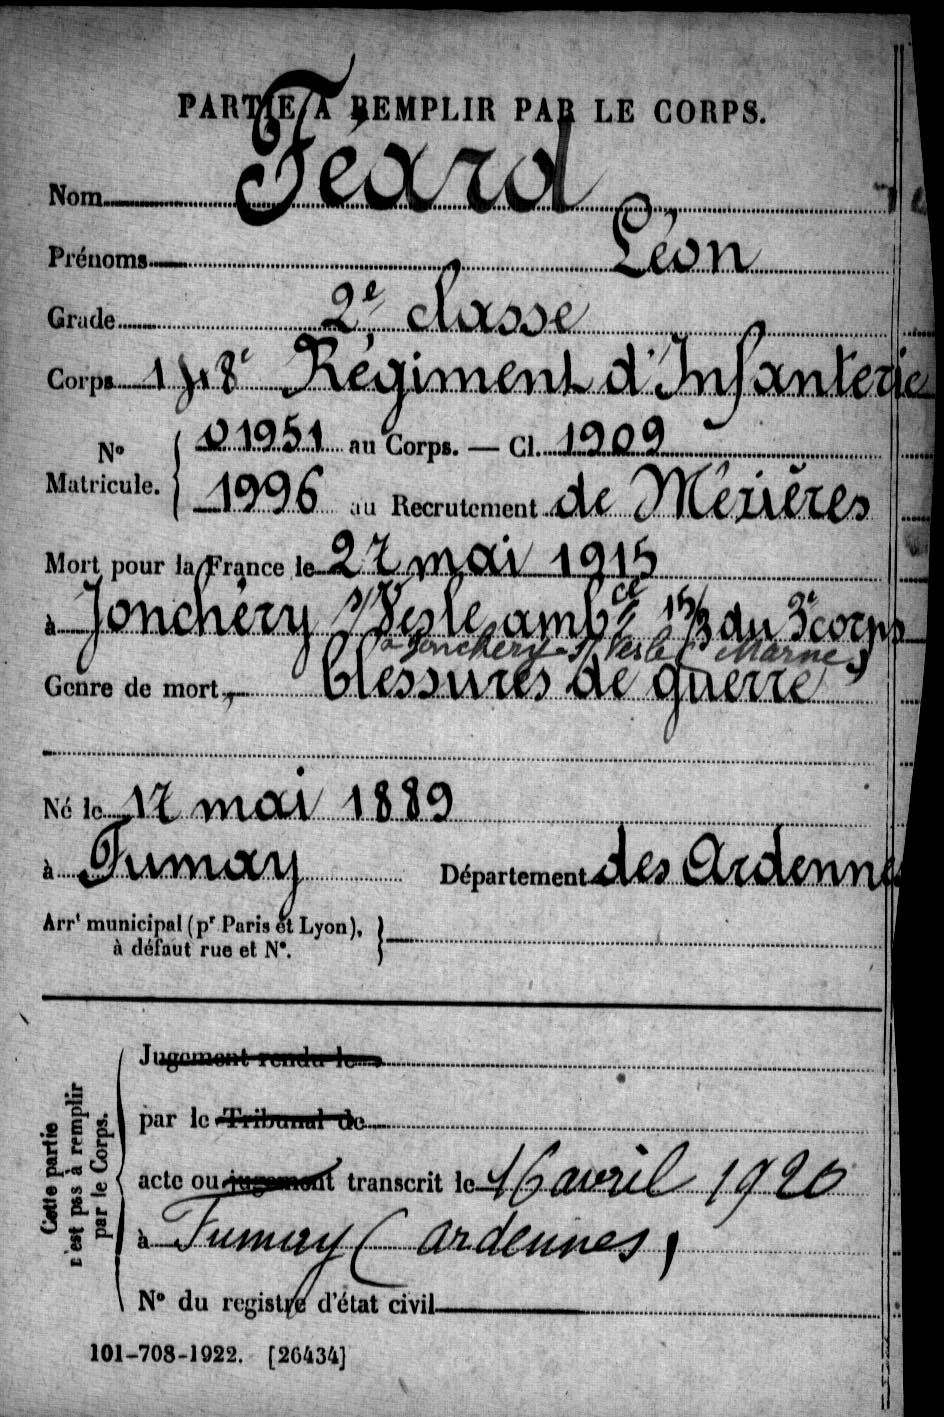 PARTIE A REMPLIR PAR LE CORPS.
Nom Féard
Prénoms Léon
Grade 2e classe
Corps 148e Régiment d'Infanterie
No Matricule. { 01951 au Corps. — Cl. 1909
1996 au Recrutement de Mézières
Mort pour la France le 27 mai 1915
à Jonchéry s/ Vesle ambce 15/3 du 3e corps
à Jonchery s/ Vesle (Marne)
Genre de mort blessures de guerre
Né le 17 mai 1889
à Fumay Département des Ardennes
Arrt municipal (pr Paris et Lyon), à défaut rue et No. }
Cette partie n'est pas à remplir par le Corps.
Jugement rendu le
par le Tribunal de
acte ou jugement transcrit le 16 avril 1920
à Fumay (Ardennes)
No du registre d'état civil
101-708-1922. [26434]